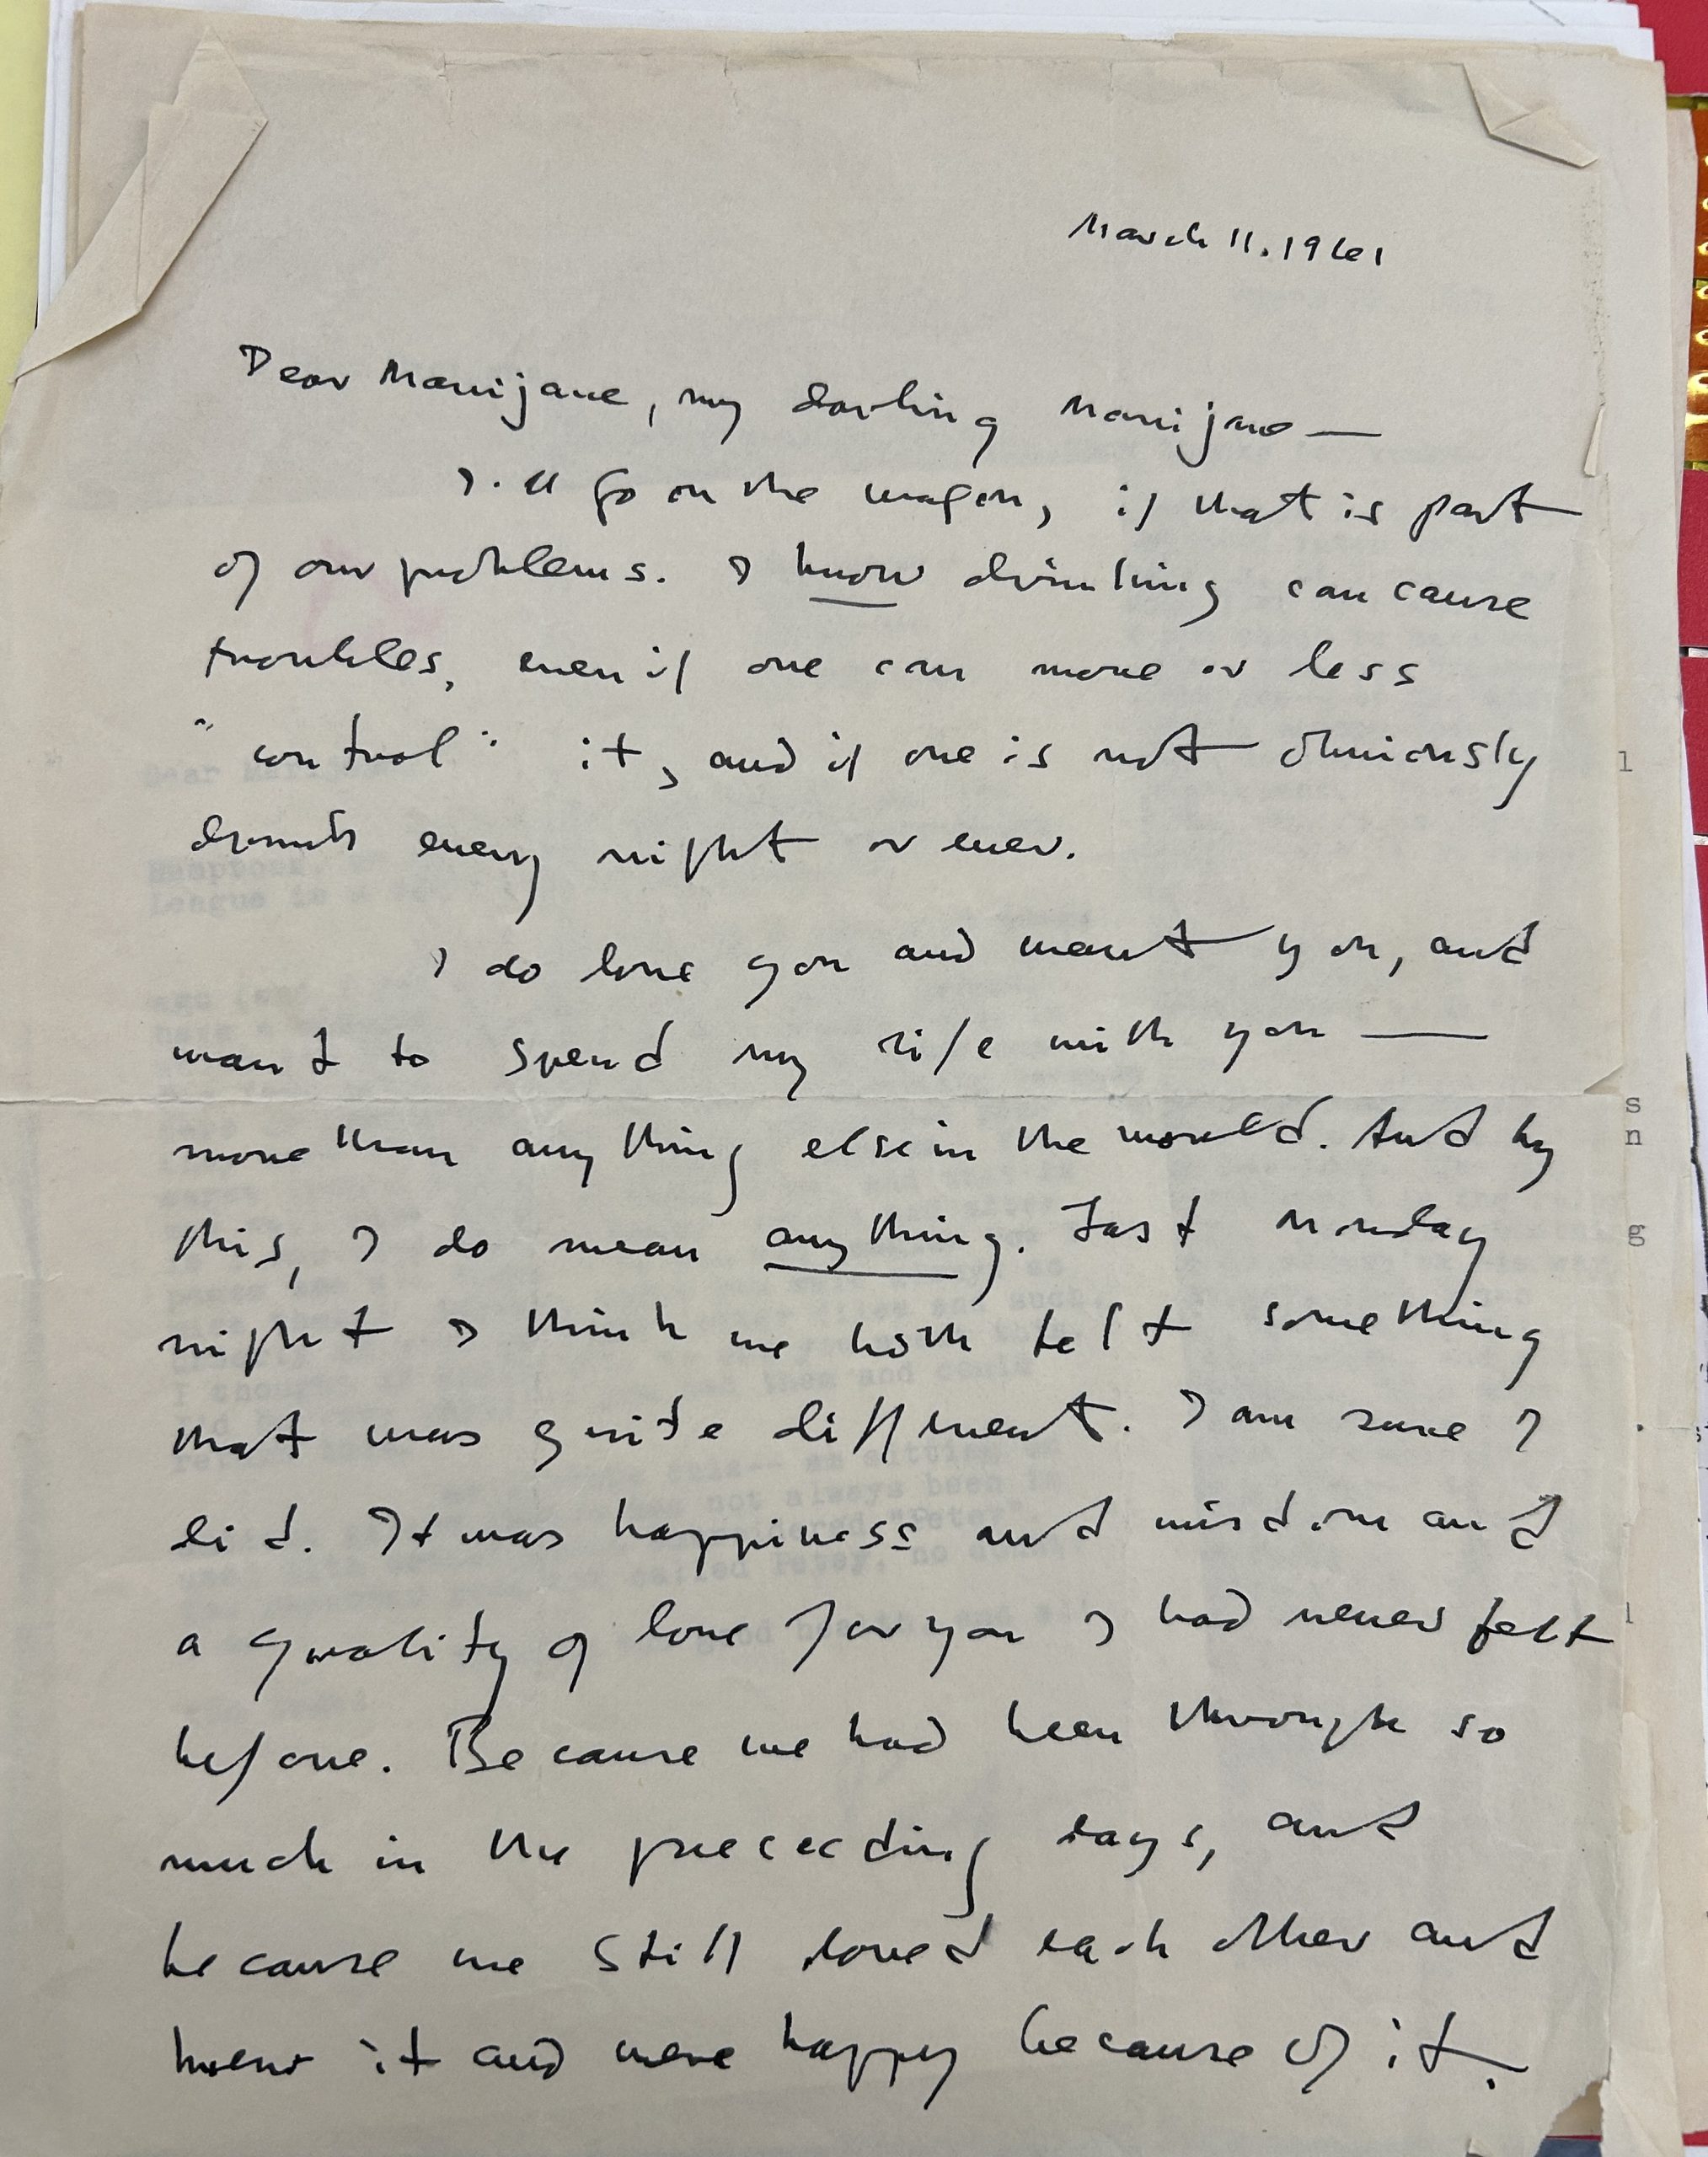 March 11. 1961
Dear Marijane, my darling Marijane —
I'll go on the wagon, if that is part
of our problems. I know drinking can cause
troubles, even if one can more or less
"control" it, and if one is not obviously
drunk every night or ever.
I do love you and want you, and
want to spend my life with you —
more than anything else in the world. And by
this, I do mean anything. Last Monday
night I think we both felt something
that was quite different. I am sure I
did. It was happiness and wisdom and
a quality of love for you I had never felt
before. Because we had been through so
much in the preceeding days, and
because we still loved each other and
knew it and were happy because of it.
l
s
n
g